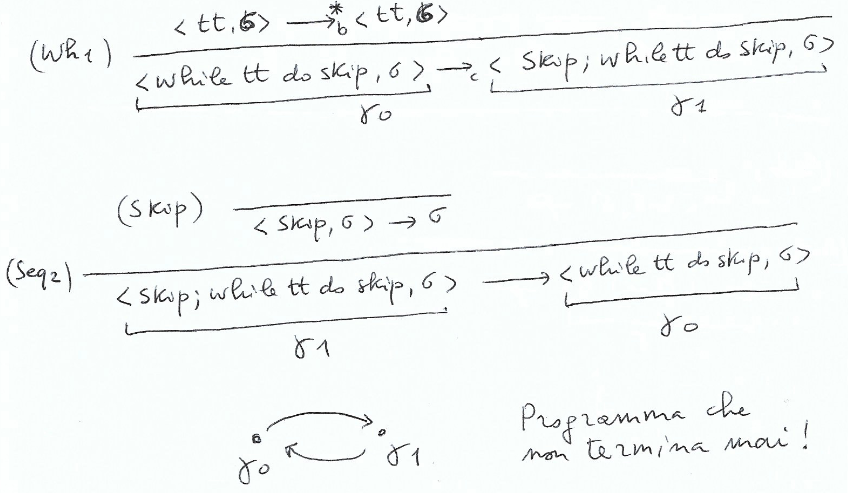 <tt,σ> →*b <tt,σ>
(Wh1)
<while tt do skip, σ> →c < Skip; while tt do skip, σ>
γ0 γ1
(Skip)
<skip, σ> → σ
(Seq2)
<skip; while tt do skip, σ> → <while tt do skip, σ>
γ1 γ0
γ0 γ1
Programma che
non termina mai!